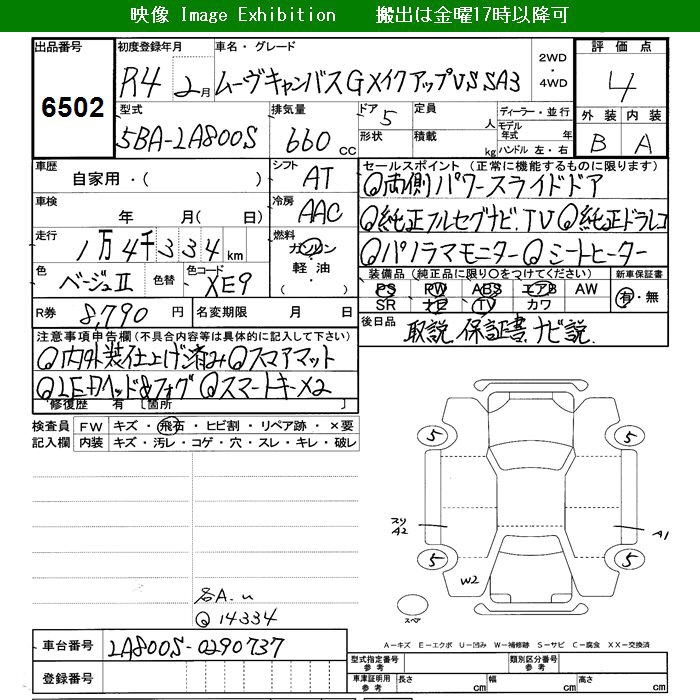 映像 Image Exhibition　搬出は金曜17時以降可
出品番号 初度登録年月 車名・グレード 評価点
6502 R4 2月 ムーヴキャンバスGメイクアップVS SA3 2WD・4WD 4
型式 排気量 ドア 5 定員 人 ディーラー・並行 外装 内装
5BA-LA800S 660cc 形状 積載 kg モデル年式 年 ハンドル 左・右 B A
車歴 自家用・( ) シフト AT
セールスポイント (正常に機能するものに限ります)
◎両側パワースライドドア
車検 年 月(日) 冷房 AAC
◎純正フルセグナビ.TV ◎純正ドラレコ
走行 1万4千334km 燃料 ガソリン・軽油・( )
◎パノラマモニター ◎シートヒーター
色 ベージュII 色替 色コード XE9
装備品 (純正品に限り○をつけてください) 新車保証書
PS PW ABS エアB AW 有・無
SR ナビ TV カワ
R券 8,790円 名変期限 月 日
後日品 取説.保証書.ナビ説.
注意事項申告欄 (不具合内容等は具体的に記入して下さい)
◎内外装仕上げ済み ◎スマアマット
◎LEDヘッド&フォグ ◎スマートキーX2
修復歴 有 [箇所
検査員記入欄 FW キズ・飛石・ヒビ割・リペア跡・×要
内装 キズ・汚レ・コゲ・穴・スレ・キレ・破レ
5 5
スリ A2 A1
5 5
W2
スペア
14334
A−キズ E−エクボ U−凹み W−補修跡 S−サビ C−腐食 XX−交換済
車台番号 LA800S-0290737
型式指定番号 参考 類別区分番号 参考
登録番号
車庫証明用 参考 長さ cm 幅 cm 高さ cm